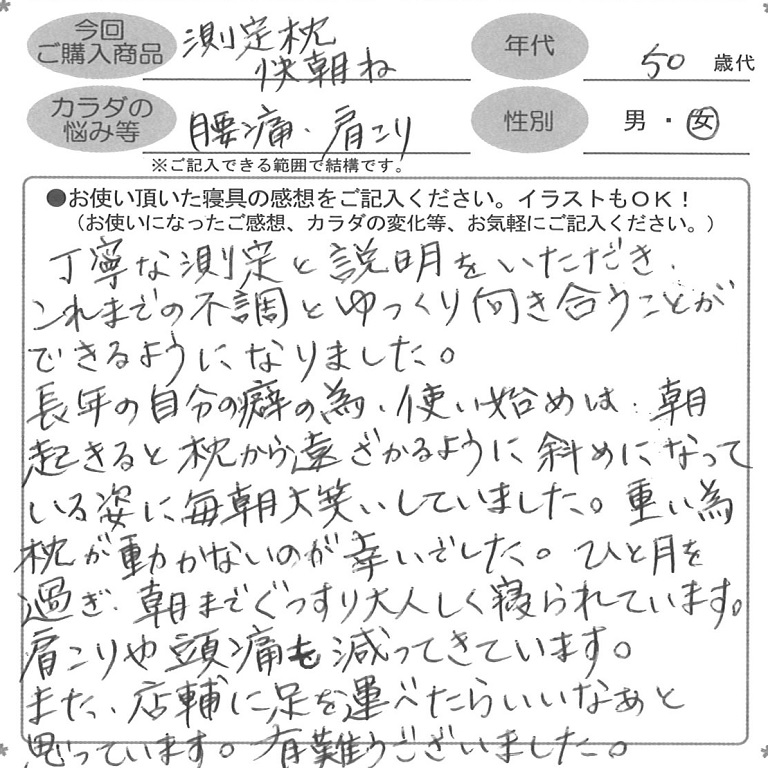 今回
ご購入商品
測定枕
快朝ね
年代
50 歳代
カラダの
悩み等
腰痛・肩こり
性別
男・女
※ご記入できる範囲で結構です。
●お使い頂いた寝具の感想をご記入ください。イラストもOK！
（お使いになったご感想、カラダの変化等、お気軽にご記入ください。）
丁寧な測定と説明をいただき、
これまでの不調とゆっくり向き合うことが
できるようになりました。
長年の自分の癖の為、使い始めは、朝
起きると枕から遠ざかるように斜めになって
いる姿に毎朝大笑いしていました。重い為
枕が動かないのが幸いでした。ひと月を
過ぎ、朝までぐっすり大人しく寝られています。
肩こりや頭痛も減ってきています。
また、店輔に足を運べたらいいなあと
思っています。有難うございました。